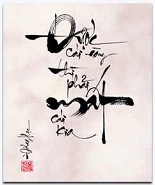 Được
cái này
thì phải
mất
cái kia